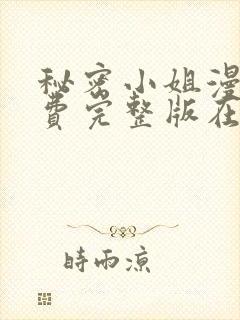 秘密小姐漫
费完整版在
時雨涼